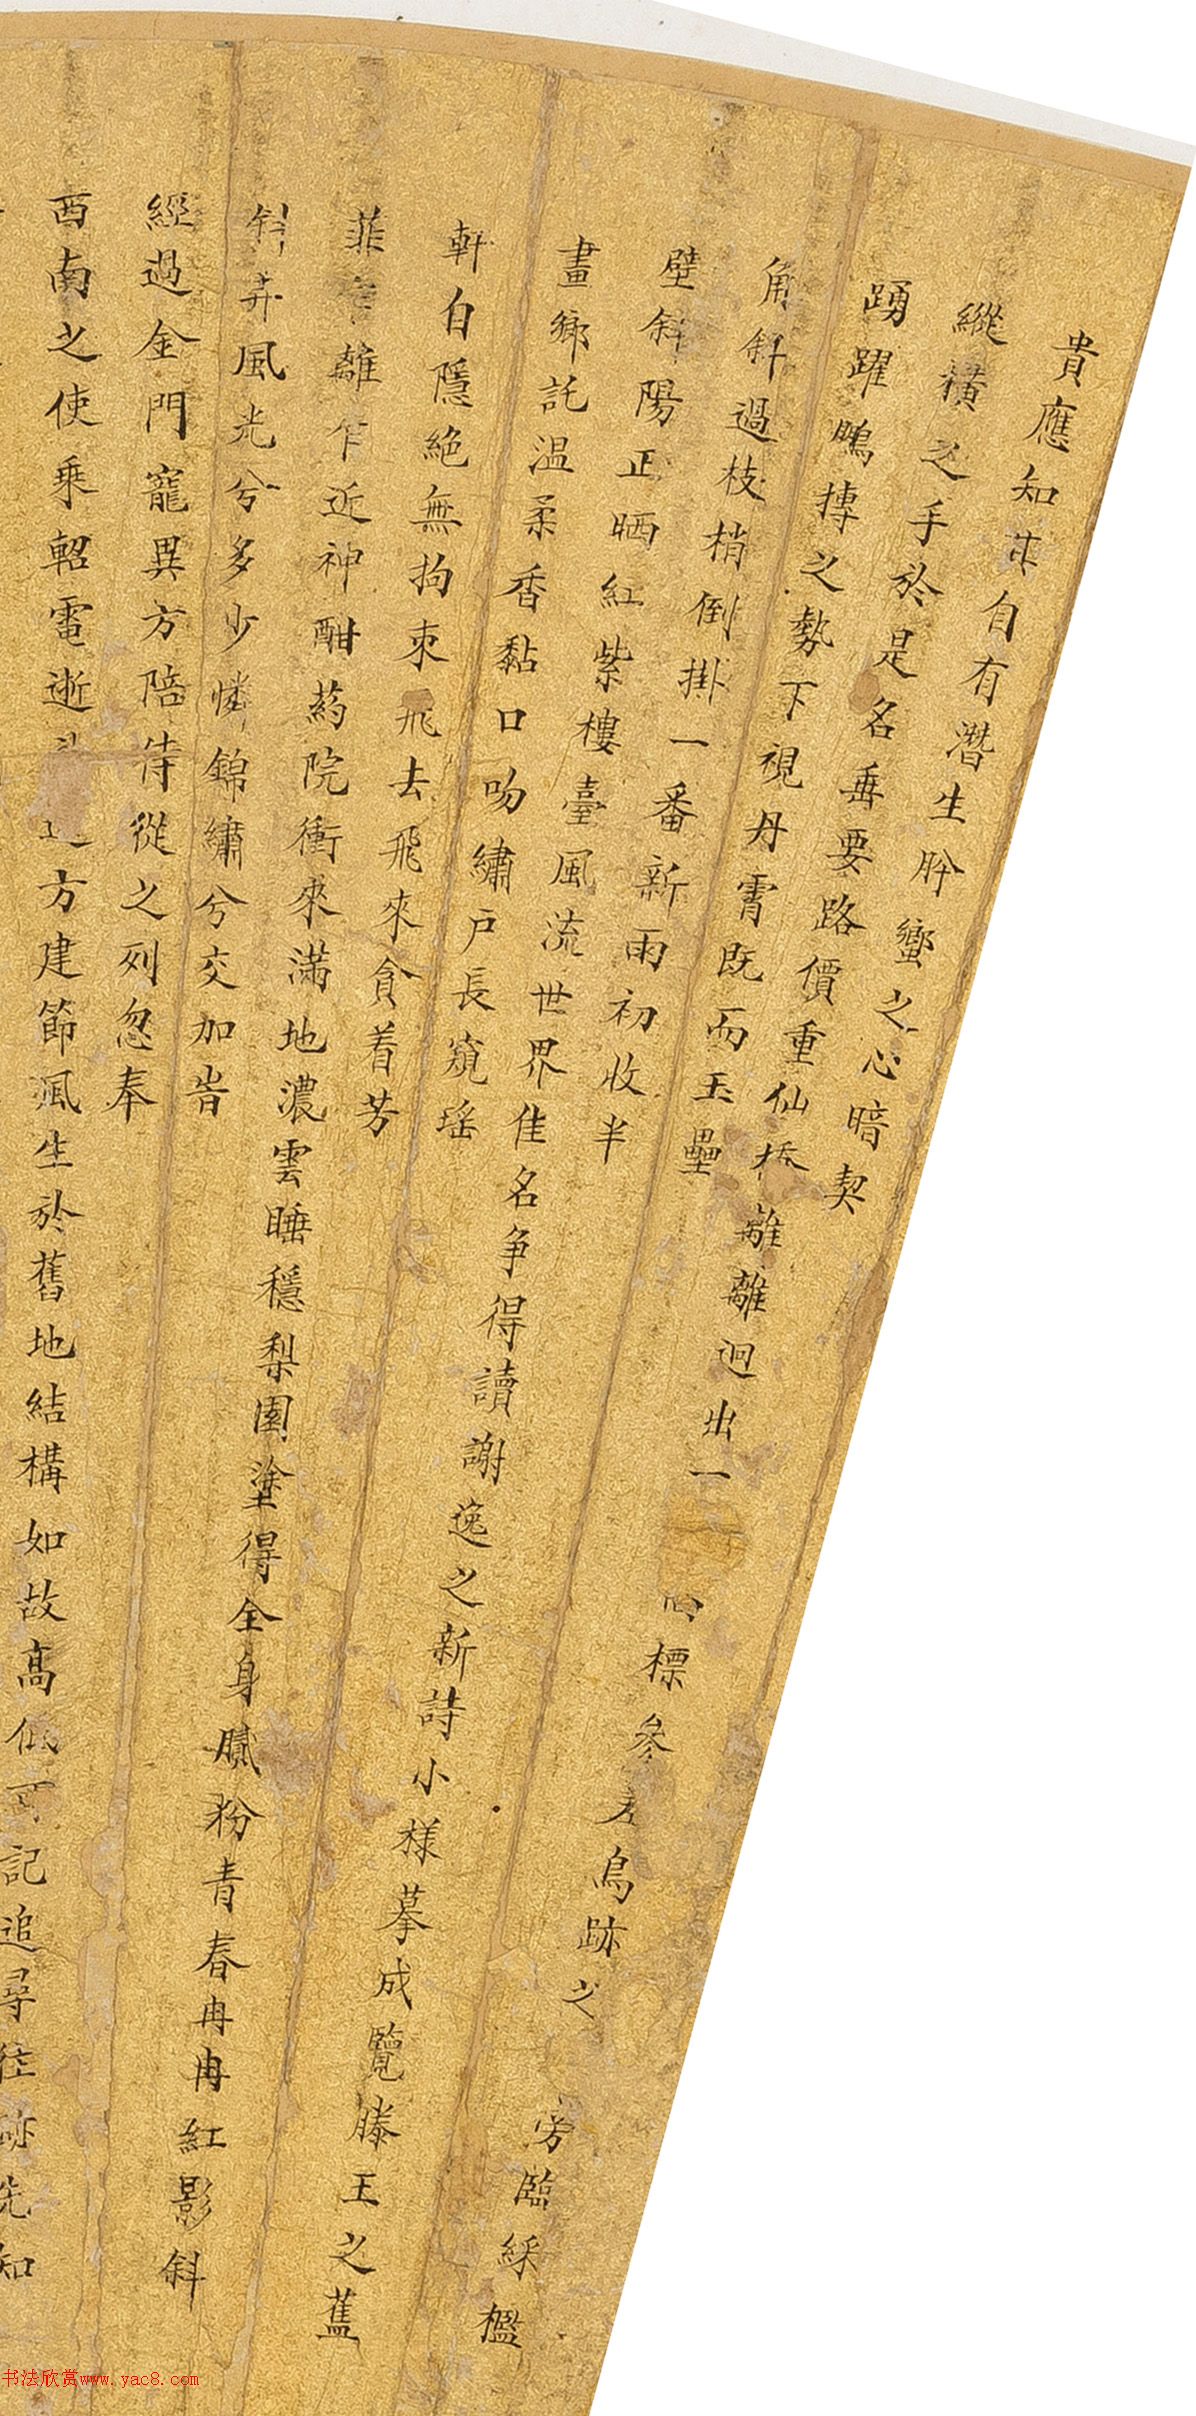 貴應知求自有潛生肸蠁之心暗契
縱橫之手於是名垂要路價重仙橋離離迥出一高標參差鳥跡之旁臨綵檻
踴躍鵬摶之勢下視丹霄既而玉壘
角斜過枝梢倒掛一番新雨初收半
壁斜陽正晒紅紫樓臺風流世界佳名爭得讀謝逸之新詩小樣摹成覽滕王之舊
畫鄉託温柔香黏口吻繡戶長窺瑤
軒自隱絕無拘束飛去飛來貪着芳
菲乍離乍近神酣葯院衝來滿地濃雲睡穩梨園塗得全身膩粉青春冉冉紅影斜
斜弄風光兮多少憐錦繡兮交加旹
經過金門寵異方陪侍從之列忽奉
西南之使乘軺電逝方建節渢生於舊地結構如故高低可記追尋往跡先知
书法欣赏www.yac8.com